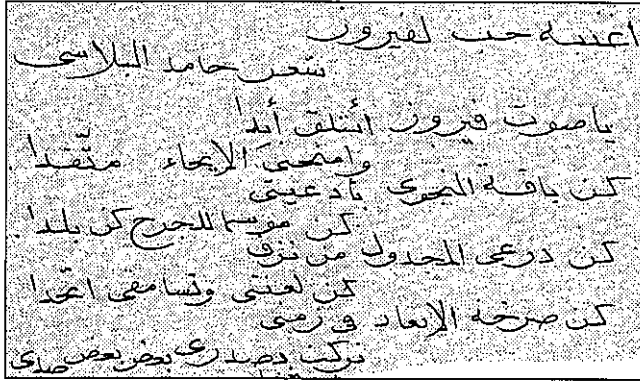 اغنية حب لفيروز
شعر حامد البلاسي
يا صوت فيروز أئتلق أبدا
وامنحني الإيحاء متّقدا
كن باقة النجوى بأدعيتي
كن موسما للجرح كن بلدا
كن درعي المجدول من نزف
كن لعنتي وتسامقي اتحدا
كن صرخة الإبعاد في زمني
تركت بصدري بعض بعض صدى